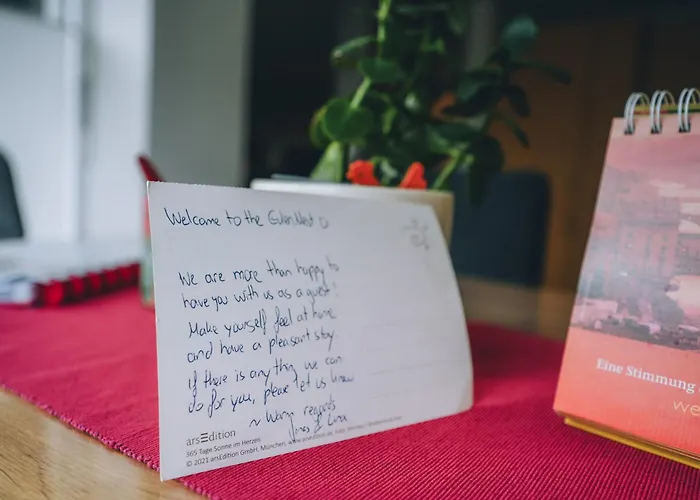 Welcome to the
We are more than happy to
have you with us as a guest!
Make yourself feel at home
and have a pleasant stay.
if there is any thing we can
do for you, please let us know
~ Warm regards
&
arsEdition
365 Tage Sonne im Herzen
© 2021 arsEdition GmbH, München, www.arsedition.de
Eine Stimmung
we